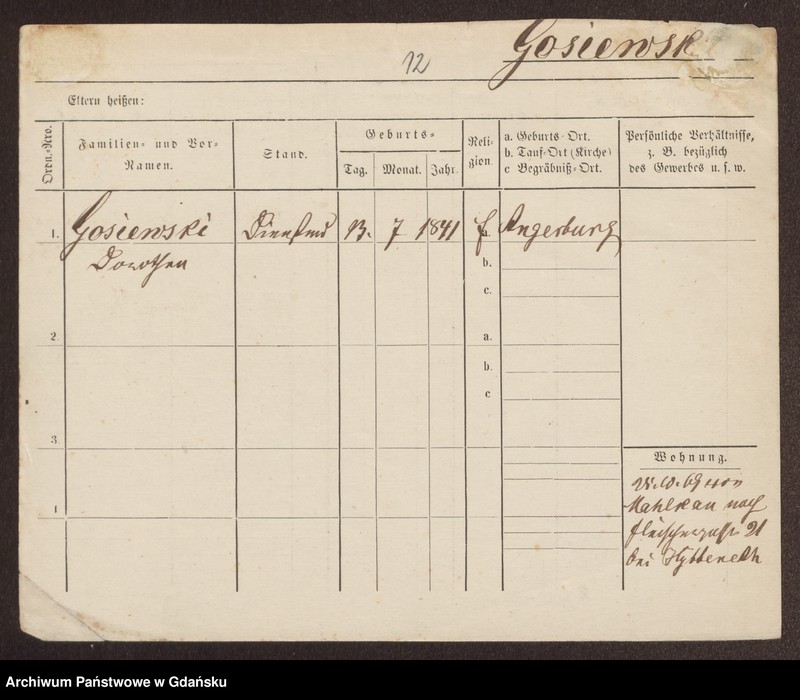 Gosiewsk
12
Eltern heißen:
Ordn.-Nro.
Familien- und Vor-Namen.
Stand.
Geburts-
Tag.
Monat.
Jahr.
Reli-gion.
a. Geburts-Ort.
b. Tauf-Ort (Kirche)
c Begräbniß-Ort.
Persönliche Verhältnisse,
z. B. bezüglich
des Gewerbes u. s. w.
1. Gosiewski 13. 7 1841 a. Angerburg
Dorothea
b.
c.
2. a.
b.
c
3.
Wohnung.
von
Mahlkau nach
Fleischergasse 21
bei
Archiwum Państwowe w Gdańsku